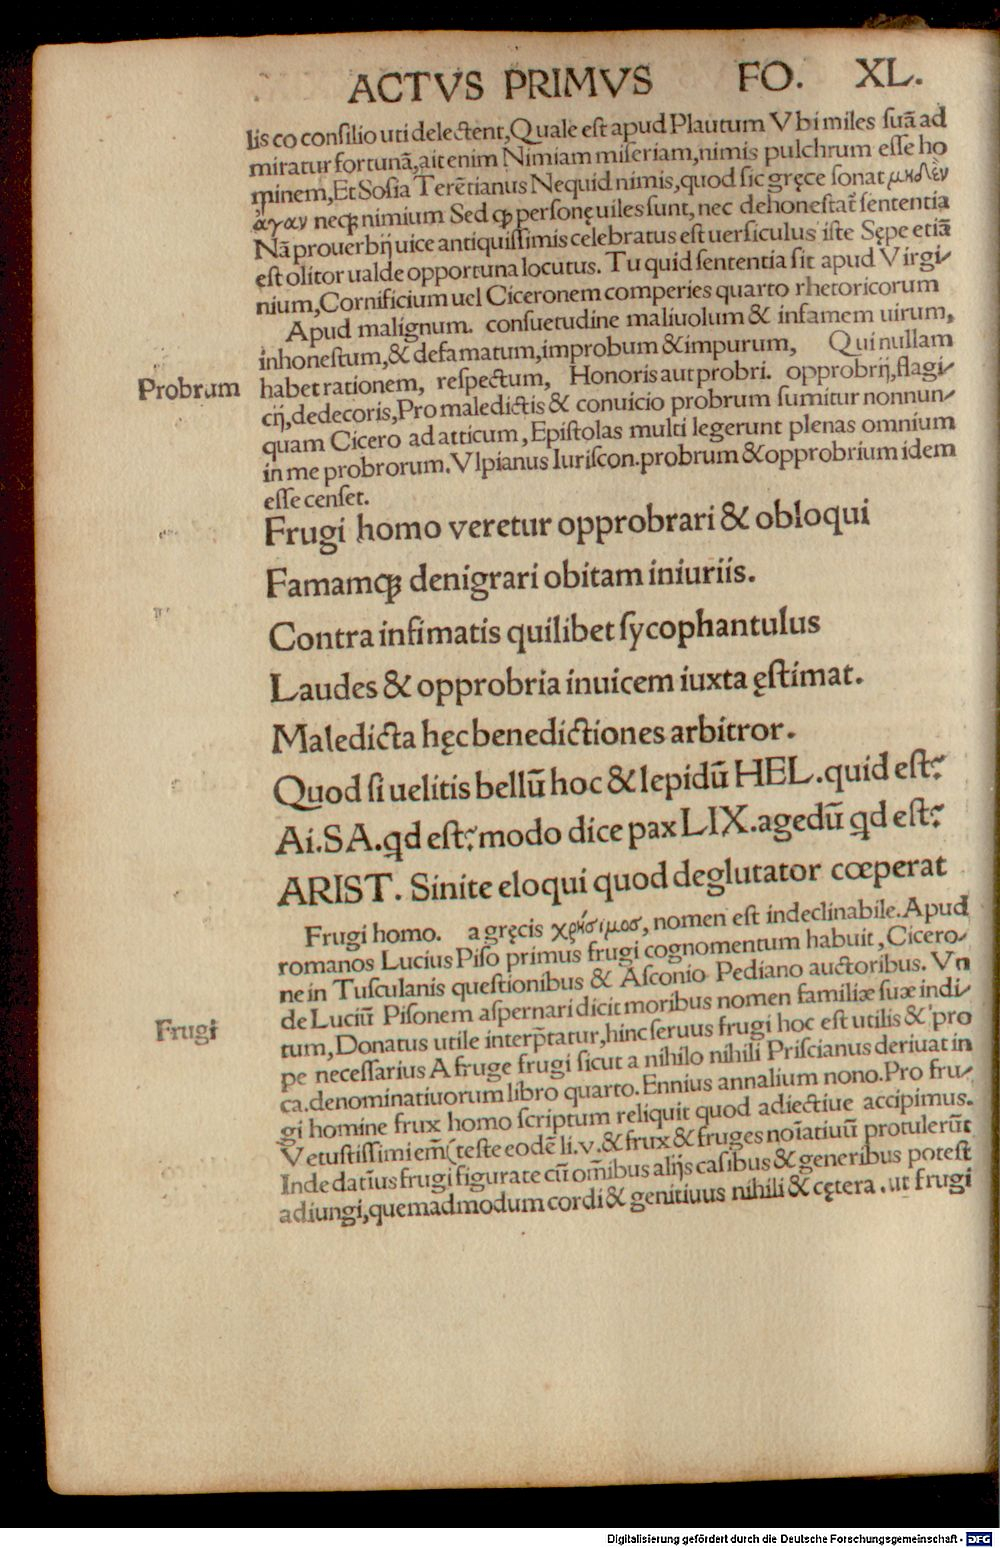 ACTVS PRIMVS FO. XL.
lis co consilio uti delectent, Quale est apud Plautum Vbi miles suā ad
miratur fortunā, ait enim Nimiam miseriam, nimis pulchrum esse ho
minem, Et Sosia Terētianus Nequid nimis, quod sic gręce sonat μηδὲν
ἄγαν neqꝫ nimium Sed ꝙ personę uiles sunt, nec dehonestat̄ sententia
Nā prouerbij uice antiquissimis celebratus est uersiculus iste Sępe etiā
est olitor ualde opportuna locutus. Tu quid sententia sit apud Virgi-
nium, Cornificium uel Ciceronem comperies quarto rhetoricorum
Apud malignum. consuetudine maliuolum & infamem uirum,
inhonestum, & defamatum, improbum & impurum, Qui nullam
Probrum habet rationem, respectum, Honoris aut probri. opprobrij, flagi-
cij, dedecoris, Pro maledictis & conuicio probrum sumitur nonnun-
quam Cicero ad atticum, Epistolas multi legerunt plenas omnium
in me probrorum. Vlpianus Iuriscon. probrum & opprobrium idem
esse censet.
Frugi homo veretur opprobrari & obloqui
Famamqꝫ denigrari obitam iniuriis.
Contra infimatis quilibet sycophantulus
Laudes & opprobria inuicem iuxta ęstimat.
Maledicta hęc benedictiones arbitror.
Quod si uelitis bellū hoc & lepidū HEL. quid est?
Ai. SA. qd est? modo dice pax LIX. agedū qd est?
ARIST. Sinite eloqui quod deglutator cœperat
Frugi homo. a gręcis χρήσιμος, nomen est indeclinabile. Apud
romanos Lucius Piso primus frugi cognomentum habuit, Cicero-
ne in Tusculanis questionibus & Asconio Pediano auctoribus. Vn
de Luciū Pisonem aspernari dicit moribus nomen familiæ suæ indi-
Frugi tum, Donatus utile interp̄tatur, hinc seruus frugi hoc est utilis & pro
pe necessarius A fruge frugi sicut a nihilo nihili Priscianus deriuat in
ca. denominatiuorum libro quarto. Ennius annalium nono. Pro fru-
gi homine frux homo scriptum reliquit quod adiectiue accipimus.
Vetustissimi em̄ (teste eodē li. v. & frux & fruges noīatiuū protulerūt
Inde datius frugi figurate cū om̄ibus alijs casibus & generibus potest
adiungi, quemadmodum cordi & genitiuus nihili & cętera. ut frugi
Digitalisierung gefördert durch die Deutsche Forschungsgemeinschaft - DFG